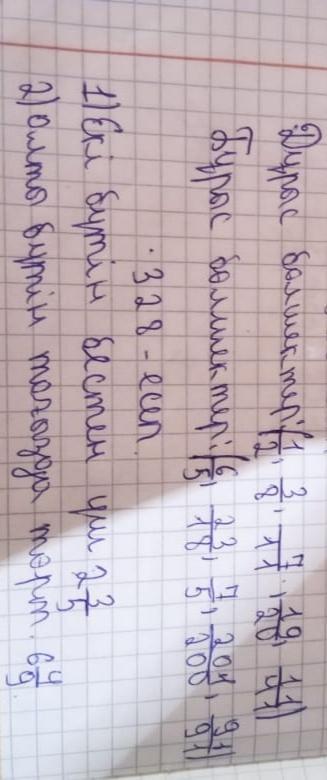 Дұрыс бөлшектер: (1/2, 3/8, 7/11, 19/20, 1/1)
Бұрыс бөлшектер: (6/5, 23/18, 7/5, 201/200, 9/91)
· 328 - есеп.
1) Екі бүтін бестен үш 2 3/5
2) алты бүтін тоғыздан төрт. 6 4/9